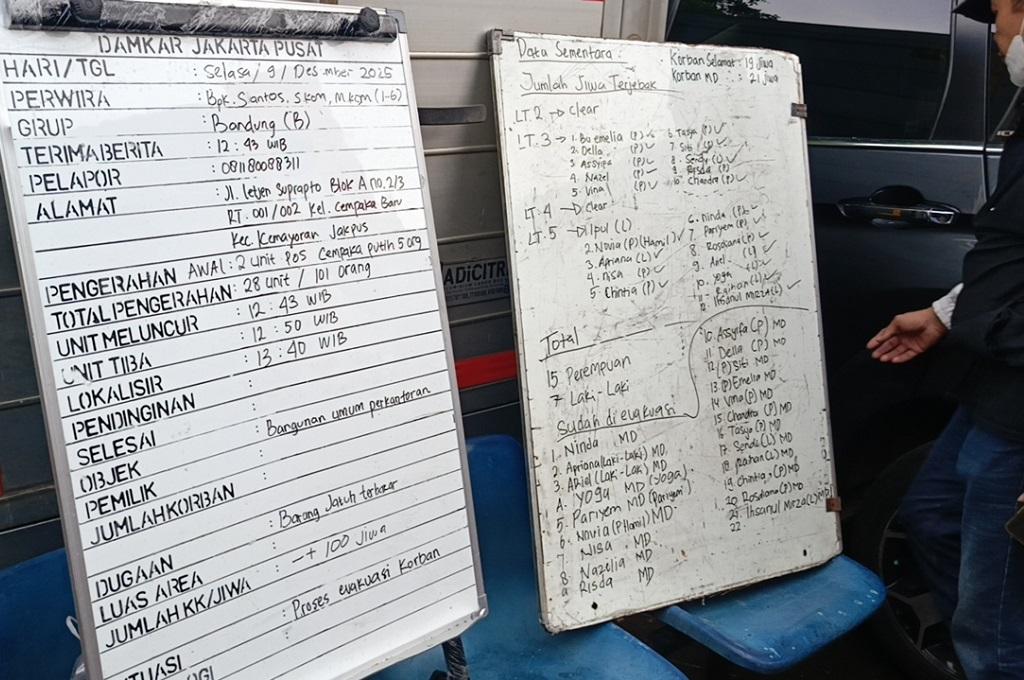 DAMKAR JAKARTA PUSAT
HARI/TGL : Selasa / 9 / Desember 2025
PERWIRA : Bpk. Santos. S.kom, M.kom (1-6)
GRUP : Bandung (B)
TERIMA BERITA : 12:43 WIB
PELAPOR : 081180088311
ALAMAT : Jl. letjen Suprapto Blok A no. 2/3
RT. 001/002 Kel. Cempaka Baru
Kec Kemayoran Jakpus
PENGERAHAN AWAL: 2 unit pos Cempaka putih 5 org
TOTAL PENGERAHAN: 28 unit / 101 orang
UNIT MELUNCUR : 12:43 WIB
UNIT TIBA : 12:50 WIB
LOKALISIR : 13:40 WIB
PENDINGINAN :
SELESAI :
OBJEK : Bangunan umum perkantoran
PEMILIK
JUMLAH KORBAN
DUGAAN : Barang Jatuh terbakar
LUAS AREA :
JUMLAH KK/JIWA : -+ 100 Jiwa
: Proses evakuasi Korban
Data Sementara :
Korban Selamat : 19 Jiwa
Korban MD : 21 Jiwa
Jumlah Jiwa Terjebak
LT. 2 → Clear
LT. 3 → 1. Bu emelia (P) ✓
2. Della (P) ✓
3 Assyifa (P) ✓
4. Nazel (P) ✓
5. Vina (P) ✓
6. Tasya (P) ✓
7. Siti (P) ✓
8. Sendy (L) ✓
9. Risda ✓
10. Chandra (P) ✓
LT. 4 → Clear
LT. 5 → 1. Ipul (L)
2. Novia (P) (Hamil) ✓
3. Apriana (L) ✓
4. nisa (P) ✓
5. Chintia (P) ✓
6. ninda (P) ✓
7. Pariyem (P) ✓
8. Rosdiana (P) ✓
9. Ariel (L) ✓
10. yoga ✓
11. Raihan (L) ✓
12. Ihsanul Mirza (L) ✓
Total
15 Perempuan
7 Laki-Laki
Sudah di evakuasi
1. Ninda MD
2. Apriana (Laki-Laki) MD
3. Ariel (Laki-Laki) MD
4. YOGA MD (Yoga)
5. Pariyem MD (Pariyem)
6 Novia (P Hamil) MD
7 Nisa MD
8 Nazelia MD
9 Risda MD
10. Assyifa (P) MD
11. Della (P) MD
12 (P) Siti MD
13 (P) Emelia MD
14 Vina (P) MD
15 Chandra (P) MD
16 Tasya (P) MD
17. Sendi (L) MD
18. Raihan (L) MD
19. Chintia (P) MD
20 Rosdiana (P) MD
21. Ihsanul Mirza (L) MD
22